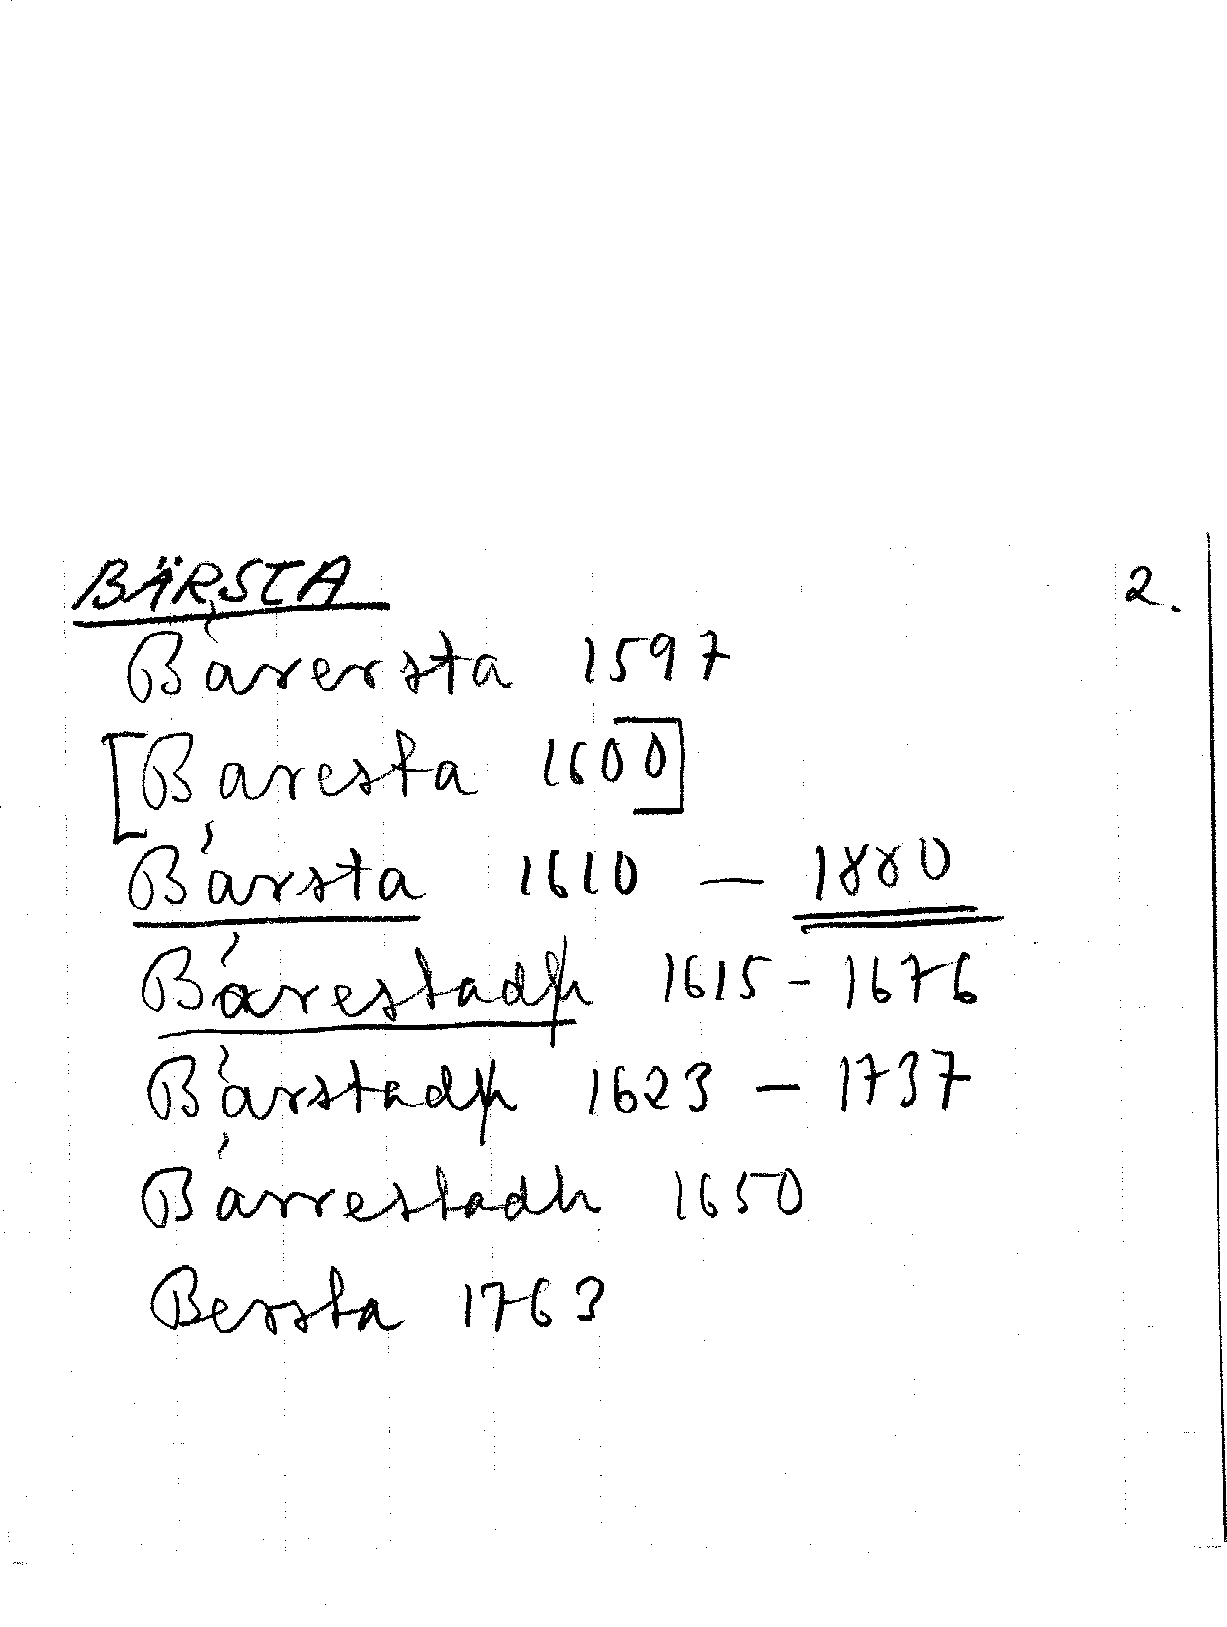 BÄRSTA 2.
Bärersta 1597
[Baresta 1600]
Bärsta 1610 — 1880
Bärestadh 1615 - 1676
Bärstadh 1623 — 1737
Bärrestadh 1650
Bersta 1763